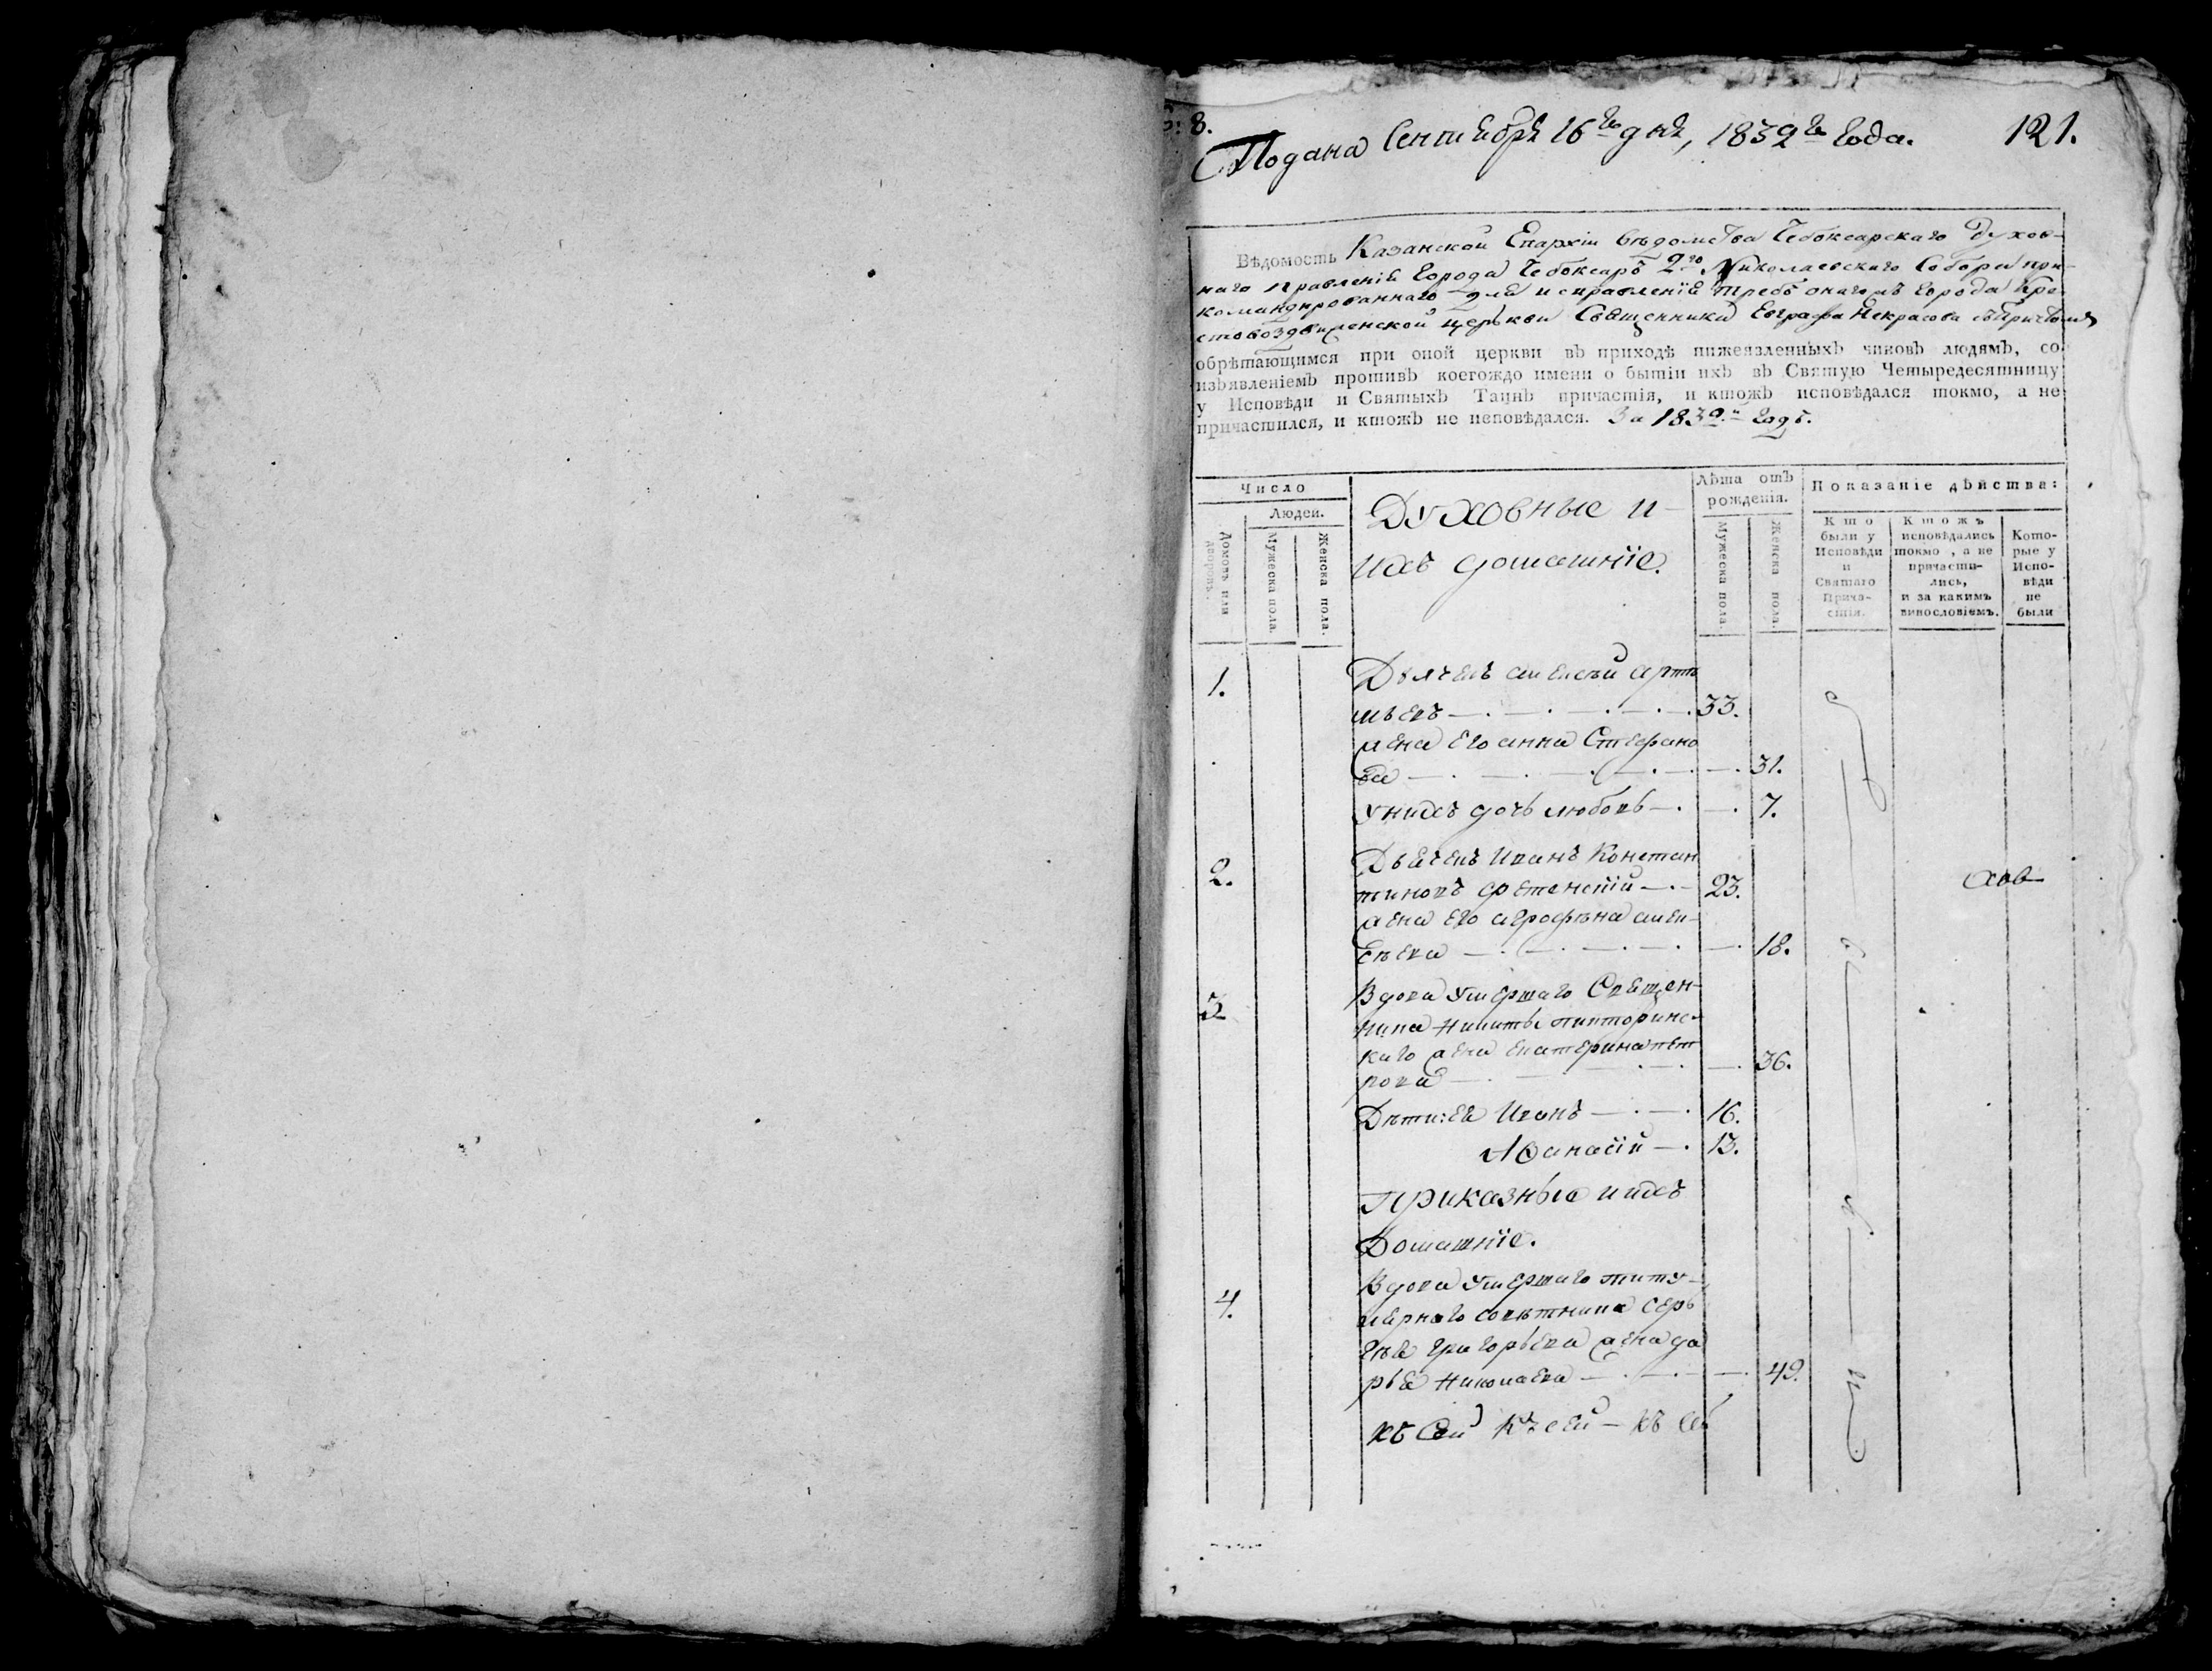 8.
121.
Подана Сентября 16го дня, 1839го Года.
Вѣдомость Казанской Епархіи вѣдомства Чебоксарскаго Духов-
наго правленія Города Чебоксаръ 2го Николаевскаго Собора при-
командированнаго для исправленія требъ онагожъ города Кре-
стовоздвиженской церькви Священника Евграфа Некрасова съ Причтомъ
обрѣтающимся при оной церкви въ приходѣ нижеявленныхъ чиновъ людямъ, со
изъявленіемъ противъ коегождо имени о бытіи ихъ въ Святую Четыредесятницу
у Исповѣди и Святыхъ Таинъ причастія, и ктожъ исповѣдался токмо, а не
причастился, и ктожъ не исповѣдался. За 1839й Годъ.
Число
Людей.
Домовъ или дворовъ.
Мужеска пола.
Женска пола.
Духовные и
ихъ домашніе.
Лѣта отъ рожденія.
Мужеска пола.
Женска пола.
Показаніе дѣйства:
Кто были у Исповѣди и Святаго Прича-стія.
Ктожъ исповѣдались токмо, а не причасти-лись, и за какимъ винословіемъ.
Кото-рые у Испо-вѣди не были
1. Дьячекъ Алексѣй Арте
мьевъ 33.
жена его Анна Стефано
ва 31.
у нихъ дочь Любовь 7.
2. Дьячекъ Иванъ Констан
тиновъ Сретенскій 23.
жена его Агрофена Алек-
сѣева 18.
3 Вдова умершаго Священ-
ника Никиты
каго жена Екатерина Пет
рова 36.
Дѣти: ея Иванъ 16.
Аѳанасій 13.
Приказные и ихъ
Домашніе.
4. Вдова умершаго титу-
лярнаго совѣтника Серь
гѣя Григорьева жена Да
рья Николаева 49.
къ сей къ сей - къ се